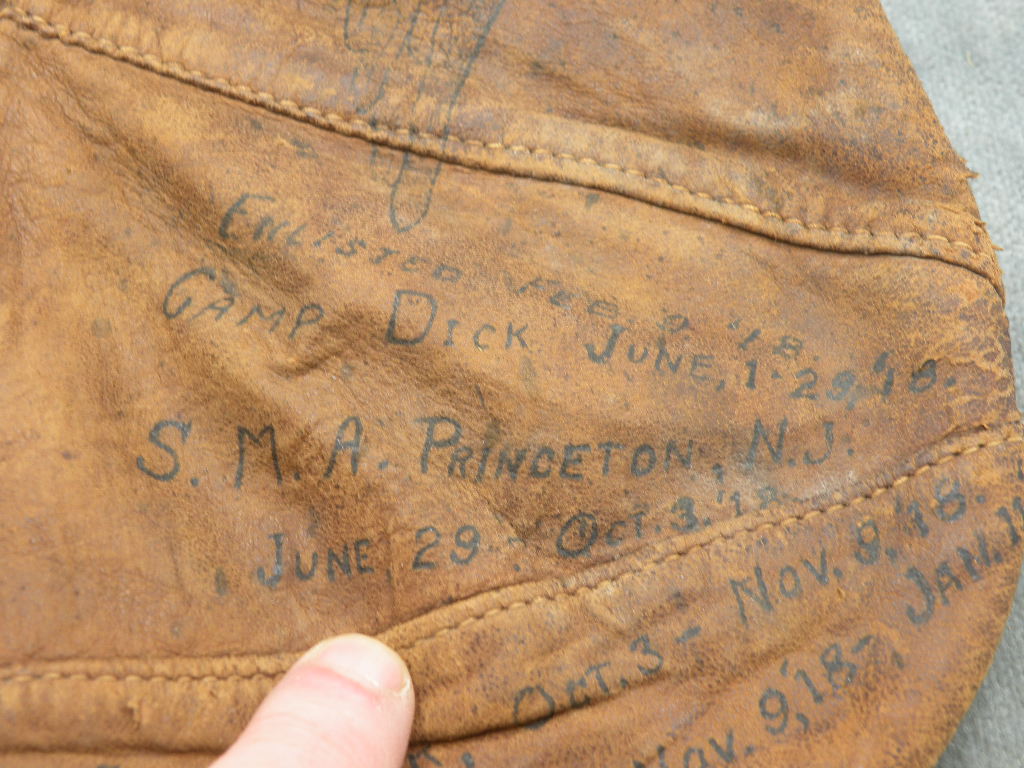 ENLISTED, FEB. 8, '18.
CAMP DICK JUNE, 1-29, '18.
S. M. A. PRINCETON, N.J.
JUNE 29 - OCT. 3, '18
OCT. 3 - NOV. 9, '18.
NOV. 9, '18 - JAN. 11